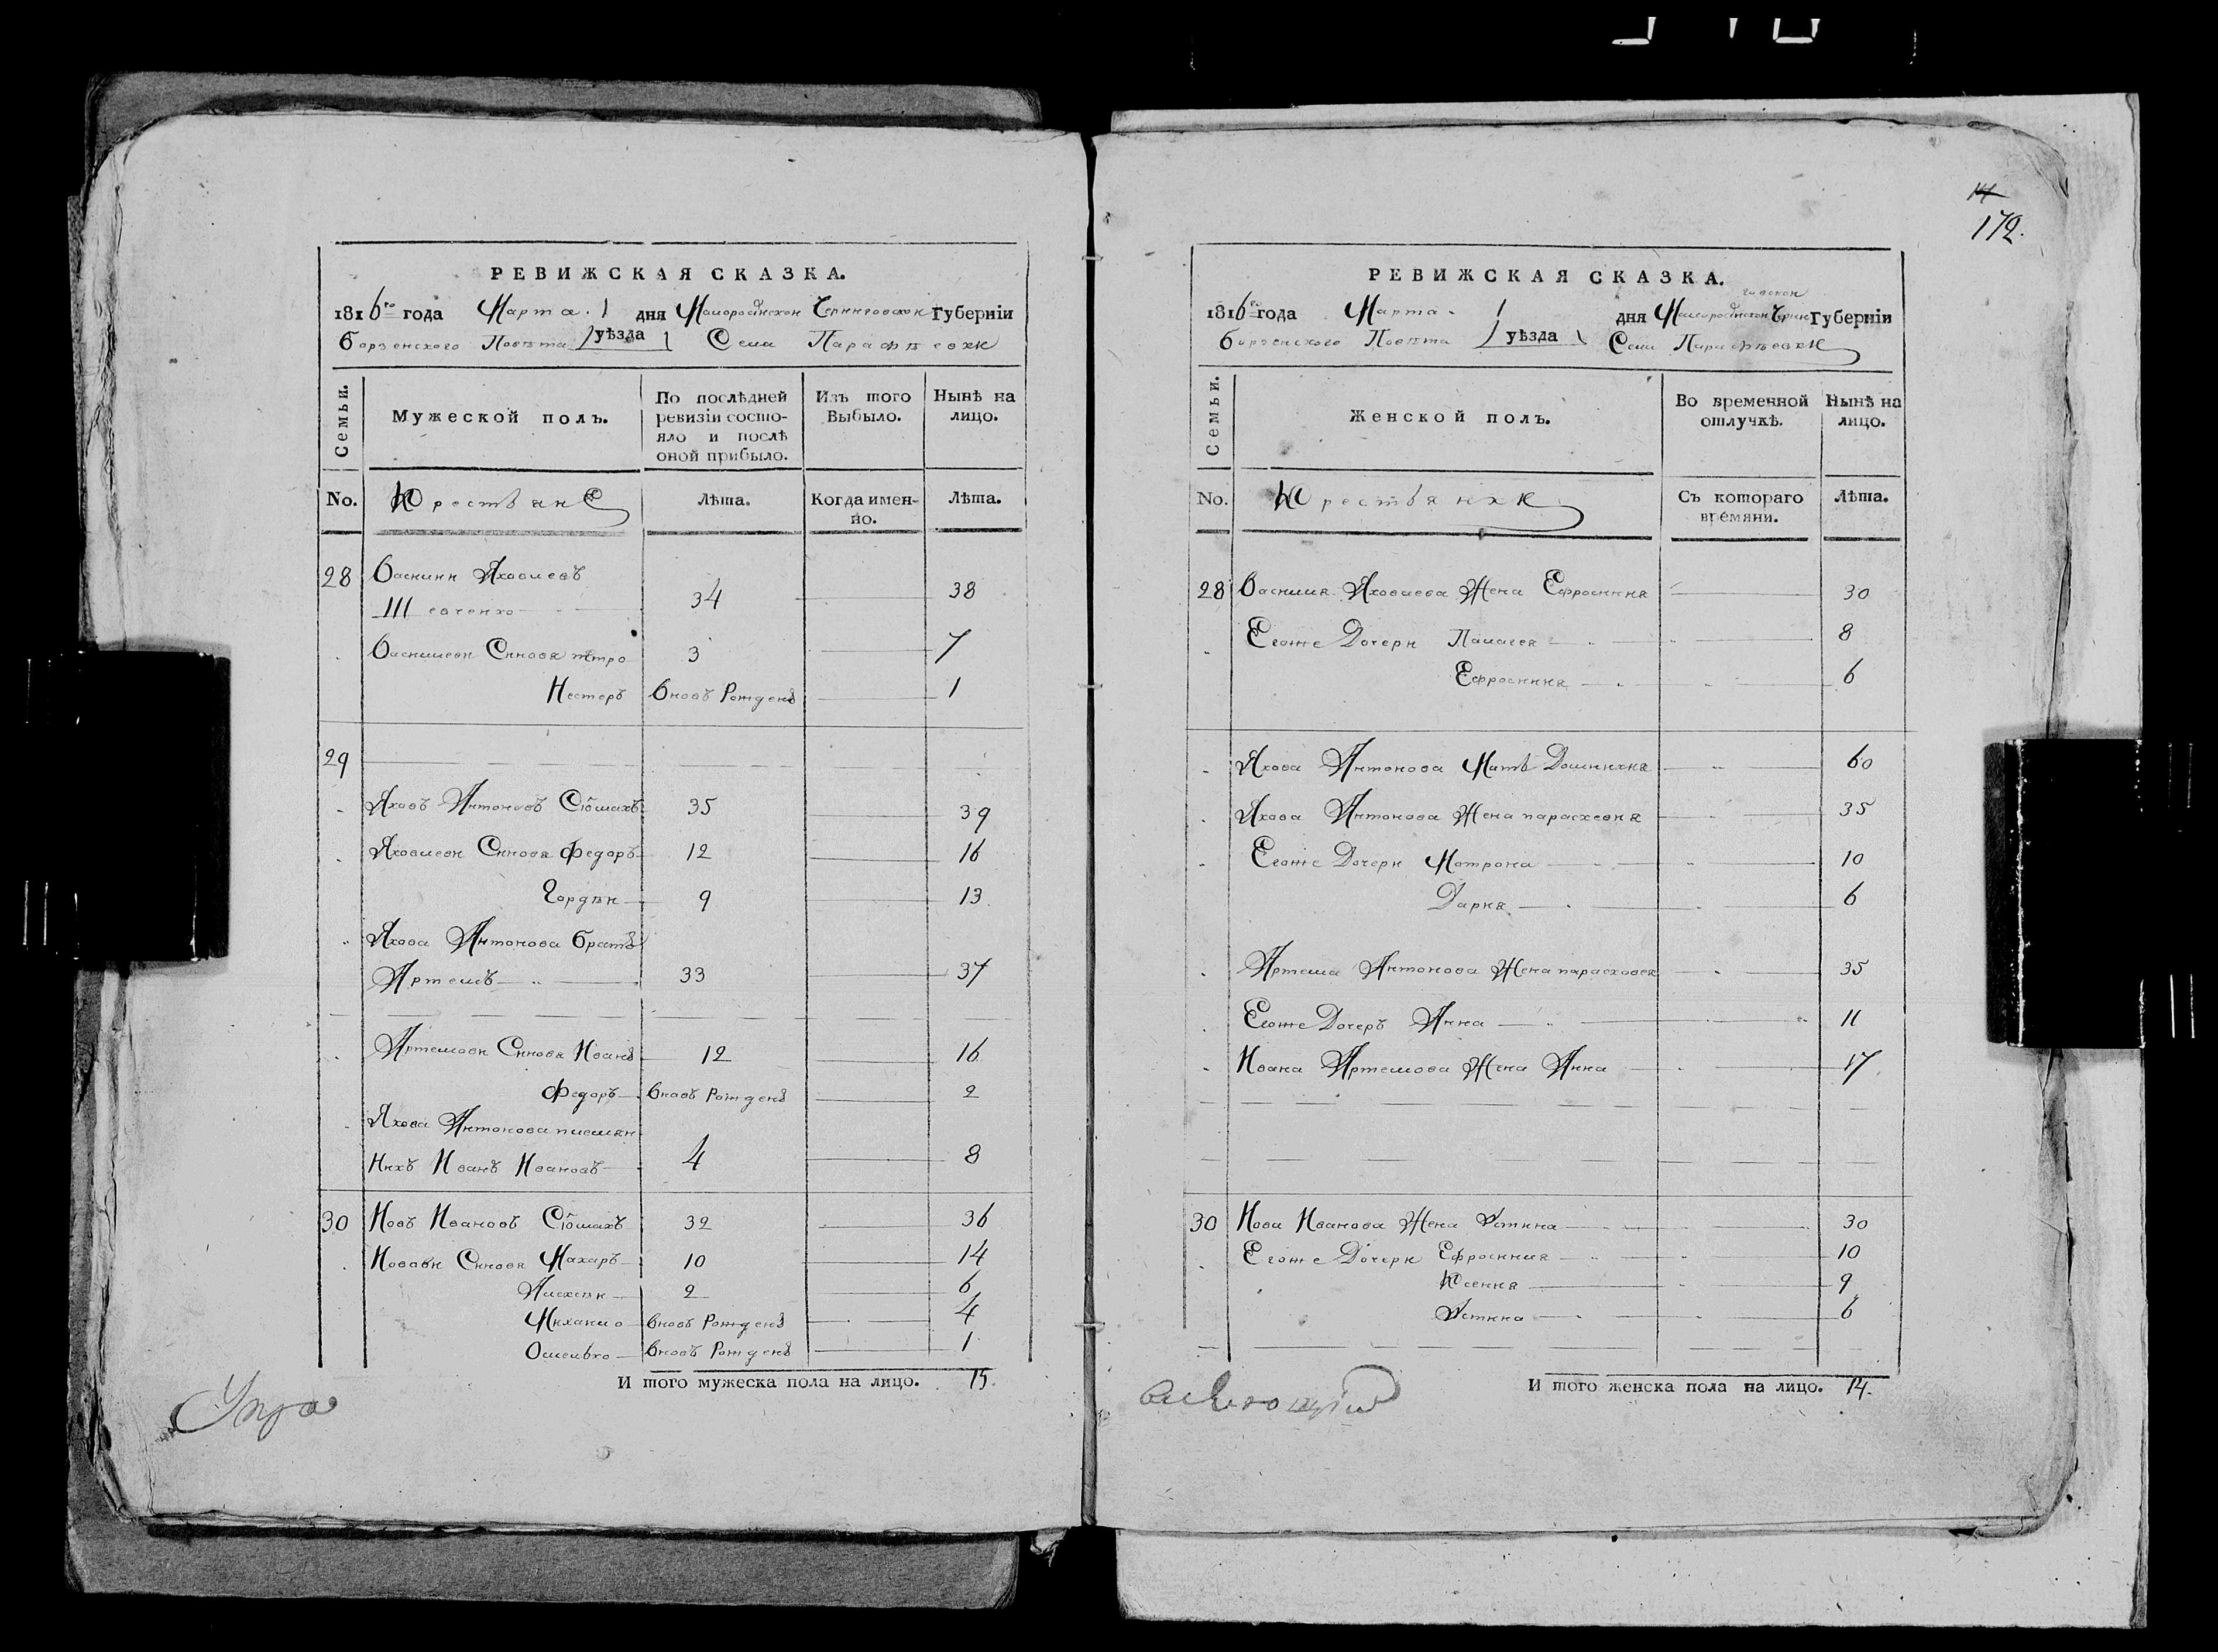 РЕВИЖСКАЯ СКАЗКА.
1816го года Марта 1 дня Малоросійской Черниговской Губерніи
Борзенского Повѣта уѣзда Села Парафѣевки
Семьи.
Мужеской полъ.
По послѣдней ревизіи состо-
яло и послѣ оной прибыло.
Изъ того Выбыло.
Нынѣ на лицо.
No. Крестьяне Лѣта. Когда имен-
но. Лѣта.
28 Василий Яковлевъ
Шевченко 34 38
Василіеви Синовя петро 3 7
Нестеръ вновь Рожденъ 1
29
Яковъ Антоновъ Стомахъ 35 39
Яковлеви Синовя Федоръ 12 16
Гордѣй 9 13
Якова Антонова братъ
Артемъ 33 37
Артемови Синовя Иванъ 12 16
Федоръ вновь Рожденъ 2
Якова Антонова племян
никъ Иванъ Ивановъ 4 8
30 Иовъ Ивановъ Стомахъ 32 36
Иовови Синовя Махаръ 10 14
Алексѣй 2 6
Михайло вновь Рожденъ 4
Омелько вновь Рожденъ 1
И того мужеска пола на лицо. 15.
172.
РЕВИЖСКАЯ СКАЗКА.
1816го года Марта 1 дня Малоросійской Черниговской Губерніи
Борзенского Повѣта уѣзда Села Парафѣевки
Семьи.
Женской полъ.
Во временной отлучкѣ.
Нынѣ на лицо.
No. Крестьянки Съ котораго времяни. Лѣта.
28 Василия Яковлева Жена Ефросиния 30
Егоже Дочери Палагея 8
Ефросиния 6
Якова Антонова Мать Домникия 60
Якова Антонова Жена парасхевия 35
Егоже Дочери Мотрона 10
Дария 6
Артема Антонова Жена парасковея 35
Егоже Дочеръ Анна 11
Ивана Артемова Жена Анна 17
30 Иова Иванова Жена Устина 30
Егоже Дочери Ефросиния 10
Ксения 9
Устина 6
И того женска пола на лицо. 14.